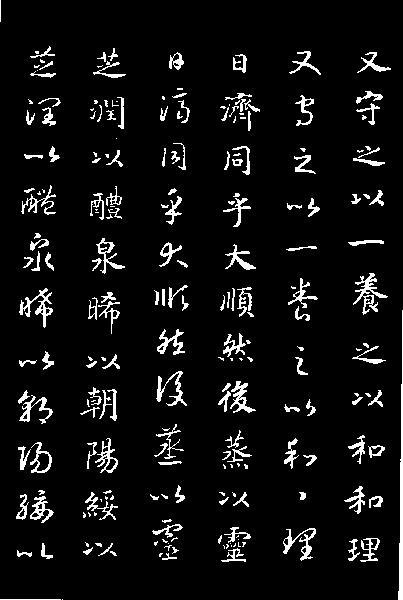 又守之以一養之以和和理
又守之以一養之以和、理
日濟同乎大順然後蒸以靈
日濟同乎大順然後蒸以靈
芝潤以醴泉晞以朝陽綏以
芝潤以醴泉晞以朝陽綏以